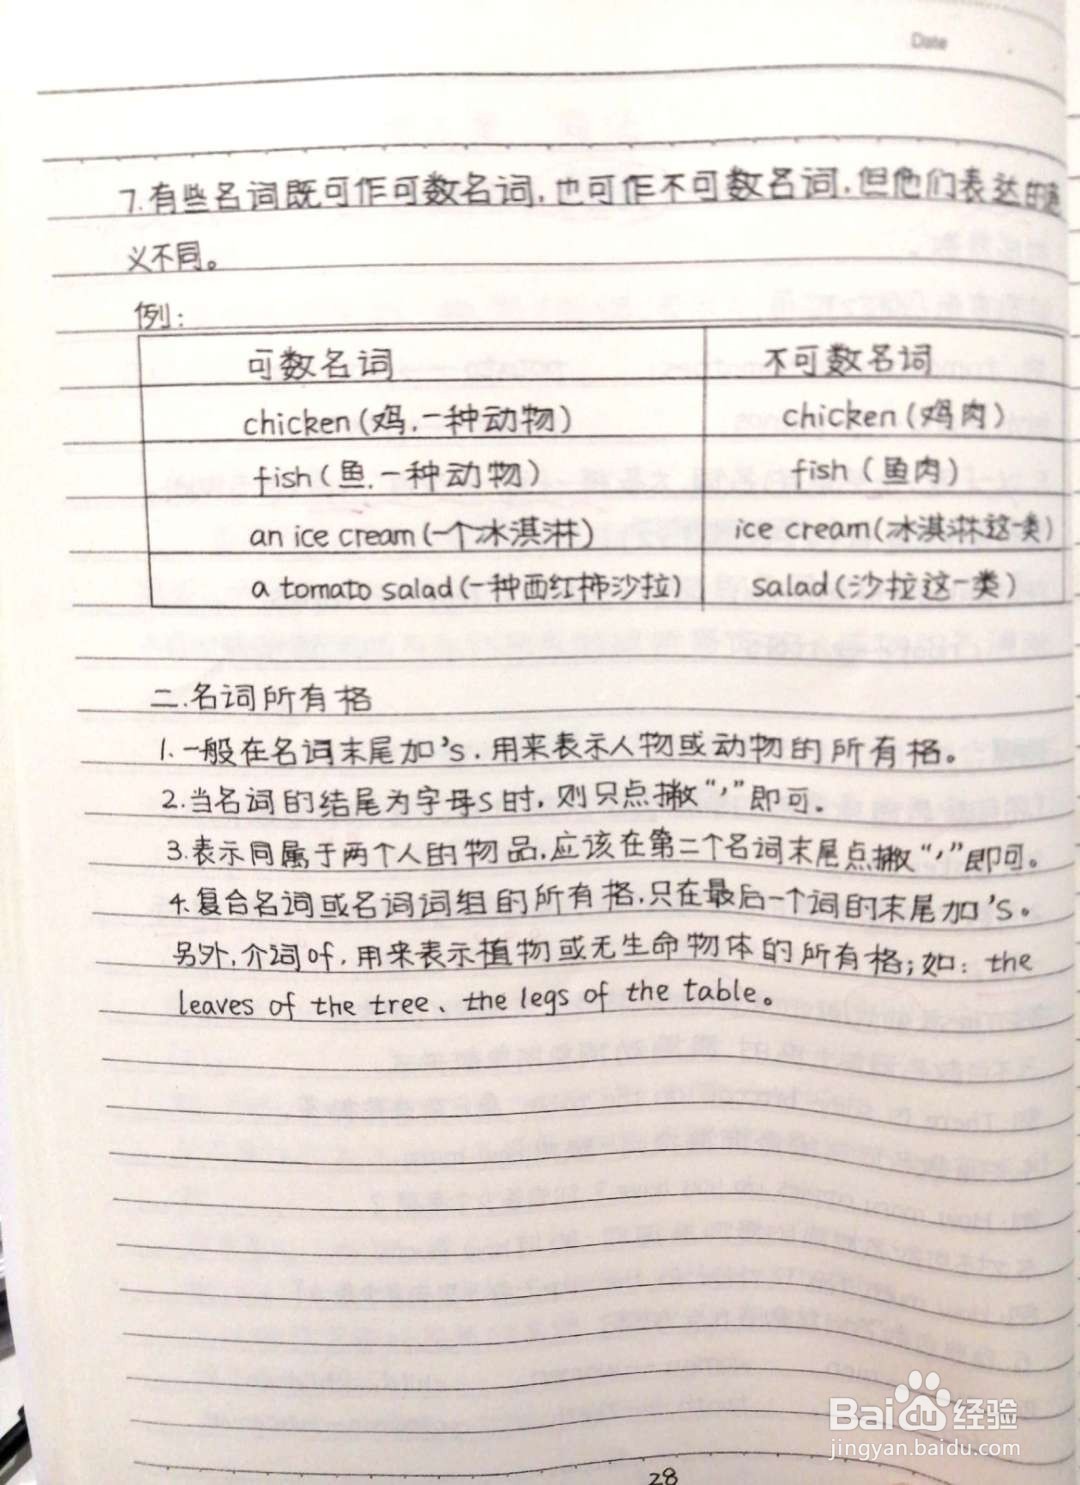 Date
7.有些名词既可作可数名词,也可作不可数名词,但他们表达的意
义不同。
例:
可数名词 不可数名词
chicken(鸡,一种动物) chicken(鸡肉)
fish(鱼,一种动物) fish(鱼肉)
an ice cream(一个冰淇淋) ice cream(冰淇淋这一类)
a tomato salad(一种西红柿沙拉) salad(沙拉这一类)
二.名词所有格
1.一般在名词末尾加's,用来表示人物或动物的所有格。
2.当名词的结尾为字母s时,则只点撇“'”即可.
3.表示同属于两个人的物品,应该在第二个名词末尾点撇“'”即可。
4.复合名词或名词词组的所有格,只在最后一个词的末尾加's。
另外,介词of,用来表示植物或无生命物体的所有格;如:the
leaves of the tree、the legs of the table。
28
Baidu经验
jingyan.baidu.com